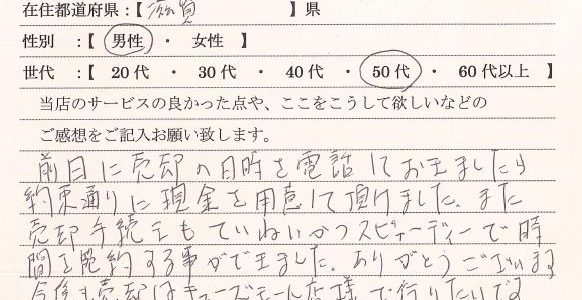 在住都道府県：【 滋賀 】県
性別 ：【 男性 ・ 女性 】
世代 ：【 20代 ・ 30代 ・ 40代 ・ 50代 ・ 60代以上 】
当店のサービスの良かった点や、ここをこうして欲しいなどの
ご感想をご記入お願い致します。
前日に売却の日時を電話しておきましたら
約束通りに現金を用意して頂けました。また
売却手続きもていねいかつスピーディーで時
間を節約する事ができました。ありがとうございます
今後も売却は 様で行りたいです